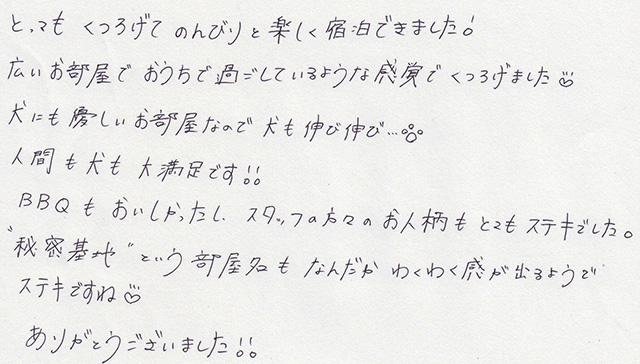 とっても くつろげて のんびりと楽しく宿泊できました!
広いお部屋で おうちで過ごしているような感覚で くつろげました♡
犬にも優しいお部屋なので 犬も伸び伸び…
人間も犬も 大満足です!!
BBQも おいしかったし、スタッフの方々の お人柄も とてもステキでした。
"秘密基地"という部屋名も なんだか わくわく感が出るようで
ステキですね♡
ありがとうございました!!